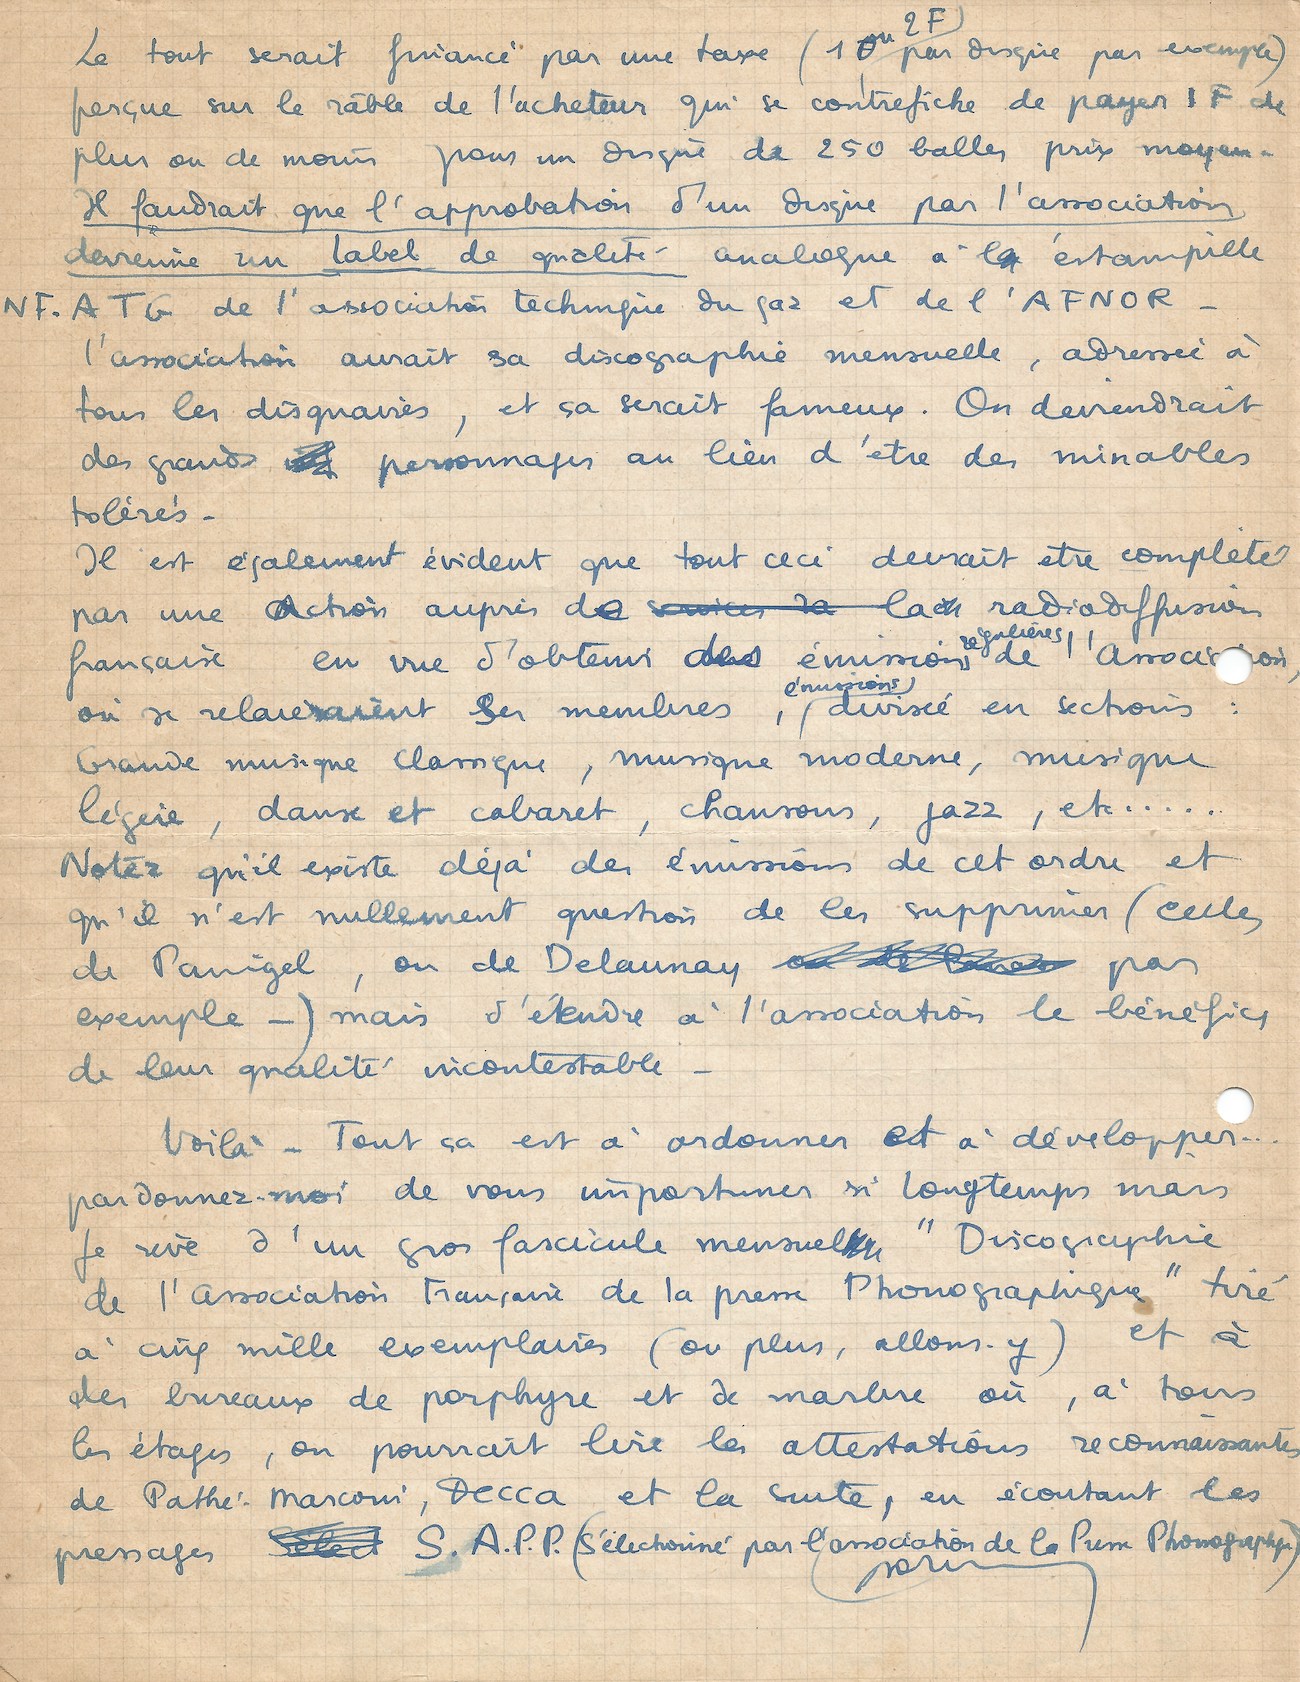 ou 2F
Le tout serait financé par une taxe (1 par disque par exemple)
perçue sur le râble de l'acheteur qui se contrefiche de payer 1 F de
plus ou de moins pour un disque de 250 balles prix moyen.
Il faudrait que l'approbation d'un disque par l'association
devienne un label de qualité analogue à la éstampille
NF. ATG de l'association technique du gaz et de l'AFNOR -
l'association aurait sa discographie mensuelle, adressée à
tous les disquaires, et ça serait fameux. On deviendrait
des grands personnages au lieu d'être des minables
tolérés -
Il est également évident que tout ceci devrait etre complété
par une Action auprès de la radiodiffusion
française en vue d'obtenir des émissions régulières de l'Association,
où se relaieraient Ses membres, émissions divisée en sections :
Grande musique classique, musique moderne, musique
légère, danse et cabaret, chansons, jazz, etc.....
Notez qu'il existe déjà des émissions de cet ordre et
qu'il n'est nullement question de les supprimer (celles
de Panigel, ou de Delaunay par
exemple -) mais d'étendre à l'association le bénéfice
de leur qualité incontestable -
Voilà - Tout ça est à ordonner et à développer...
pardonnez-moi de vous importuner si longtemps mais
je rêve d'un gros fascicule mensuel "Discographie
de l'Association Française de la presse Phonographique" tiré
à cinq mille exemplaires (ou plus, allons-y) et à
des bureaux de porphyre et de marbre où, à tous
les étages, on pourrait lire les attestations reconnaissantes
de Pathé-Marconi, Decca et la suite, en écoutant les
pressages S.A.P.P. (Sélectionné par l'association de la Presse Phonographique)